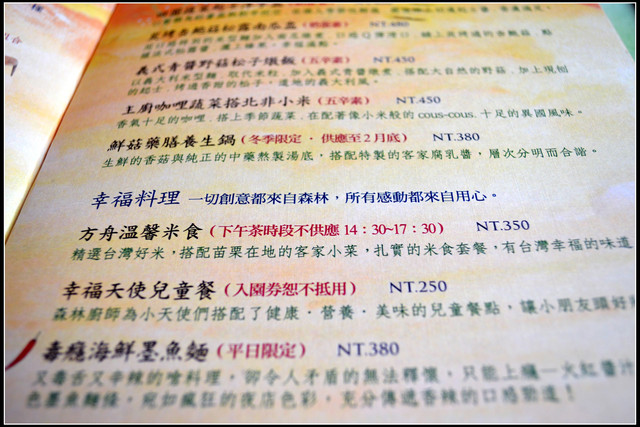 組合
NT.480
義式青醬野菇松子燉飯（五辛素） NT.450
以義大利米型麵，取代米粒，加入義式青醬燉煮，搭配大自然的野菇，加上現刨
的起士，烤過香甜的松子，道地的義大利風。
主廚咖哩蔬菜搭北非小米（五辛素） NT.450
香氣十足的咖哩，搭上季節蔬菜，在配著像小米般的 cous-cous，十足的異國風味。
鮮菇藥膳養生鍋（冬季限定‧供應至2月底） NT.380
生鮮的香菇與純正的中藥熬製湯底，搭配特製的客家腐乳醬，層次分明而合諧。
幸福料理 一切創意都來自森林，所有感動都來自用心。
方舟溫馨米食（下午茶時段不供應 14：30~17：30） NT.350
精選台灣好米，搭配苗栗在地的客家小菜，扎實的米食套餐，有台灣幸福的味道
幸福天使兒童餐（入園券恕不抵用） NT.250
森林廚師為小天使們搭配了健康‧營養‧美味的兒童餐點，讓小朋友
毒癮海鮮墨魚麵（平日限定） NT.380
又毒舌又辛辣的嗆料理，卻令人矛盾的無法釋懷，只能上癮一火紅醬汁
色墨魚麵條，宛如瘋狂的夜店色彩，充分傳遞香辣的口感勁道！